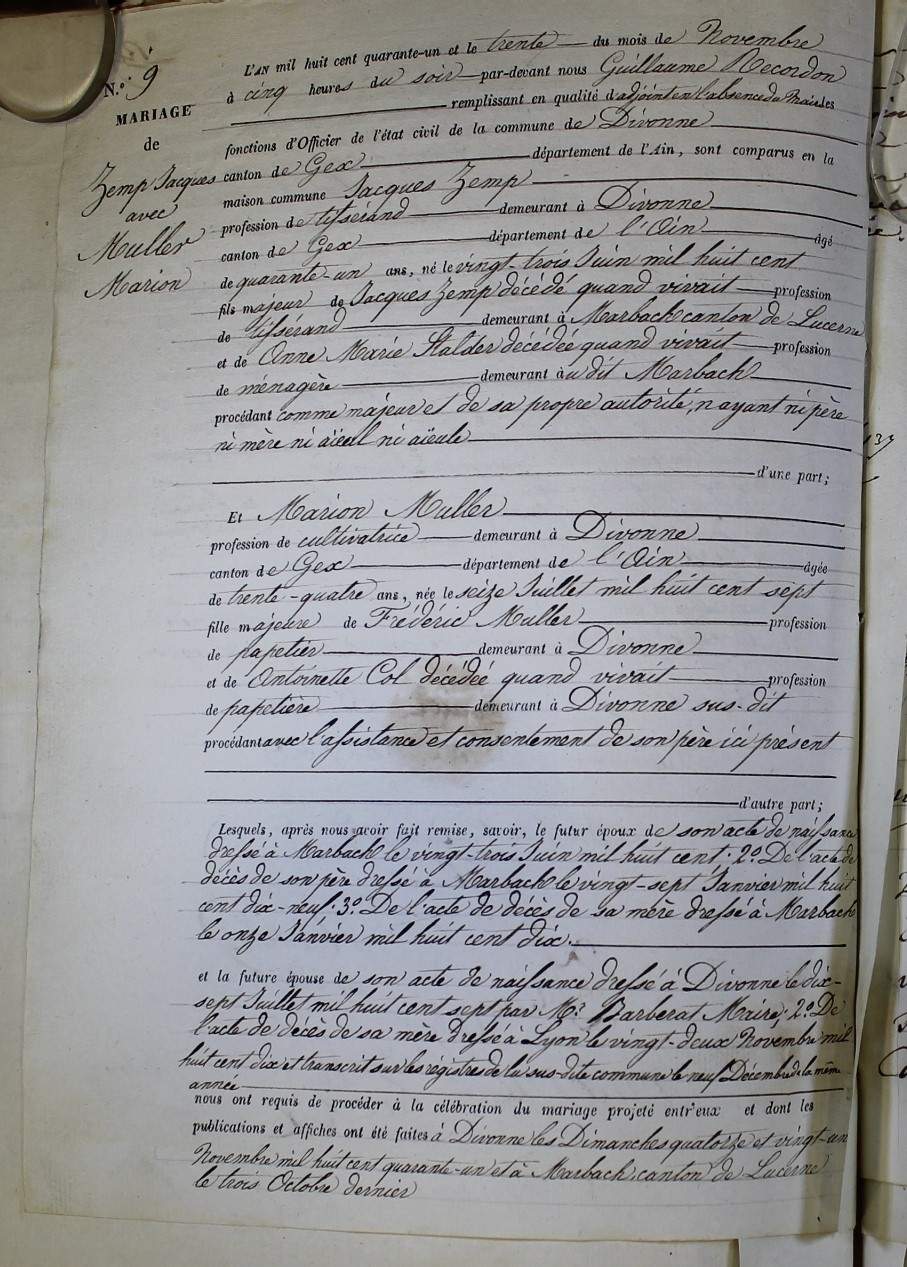 N.o 9
MARIAGE
de
Zemp Jacques
avec
Muller
Marion
L'AN mil huit cent quarante-un et le trente du mois de Novembre
à cinq heures du soir par-devant nous Guillaume Recordon
remplissant en qualité d'adjoint en l'absence du Maire les
fonctions d'Officier de l'état civil de la commune de Divonne
canton de Gex département de l'Ain, sont comparus en la
maison commune Jacques Zemp
profession de tissérand demeurant à Divonne
canton de Gex département de l'Ain âgé
de quarante-un ans, né le vingt-trois Juin mil huit cent
fils majeur de Jacques Zemp décédé quand vivait profession
de tissérand demeurant à Marbach canton de Lucerne
et de Anne Marie Stalder décédée quand vivait profession
de ménagère demeurant à u dit Marbach
procédant comme majeur et de sa propre autorité, n'ayant ni père
ni mère ni aïeul ni aïeule
d'une part;
Et Marion Muller
profession de cultivatrice demeurant à Divonne
canton de Gex département de l'Ain âgée
de trente-quatre ans, née le seize Juillet mil huit cent sept
fille majeure de Frédéric Muller profession
de papetier demeurant à Divonne
et de Antoinette Col décédée quand vivait profession
de papetière demeurant à Divonne sus-dit
procédant avec l'assistance et consentement de son père ici présent
d'autre part;
Lesquels, après nous avoir fait remise, savoir, le futur époux de son acte de naissance
dressé à Marbach le vingt-trois Juin mil huit cent. 2.o De l'acte de
décès de son père dressé à Marbach le vingt-sept Janvier mil huit
cent dix-neuf. 3.o De l'acte de décès de sa mère dressé à Marbach
le onze Janvier mil huit cent dix.
et la future épouse de son acte de naissance dressé à Divonne le dix-
sept Juillet mil huit cent sept par Mr. Barberat Maire; 2.o De
l'acte de décès de sa mère dressé à Lyon le vingt-deux Novembre mil
huit cent dix et transcrit sur les régistres de la sus-dite commune le neuf Décembre de la même
année
nous ont requis de procéder à la célébration du mariage projeté entr'eux et dont les
publications et affiches ont été faites à Divonne les Dimanches quatorze et vingt-un
Novembre mil huit cent quarante-un et à Marbach, canton de Lucerne
le trois Octobre dernier